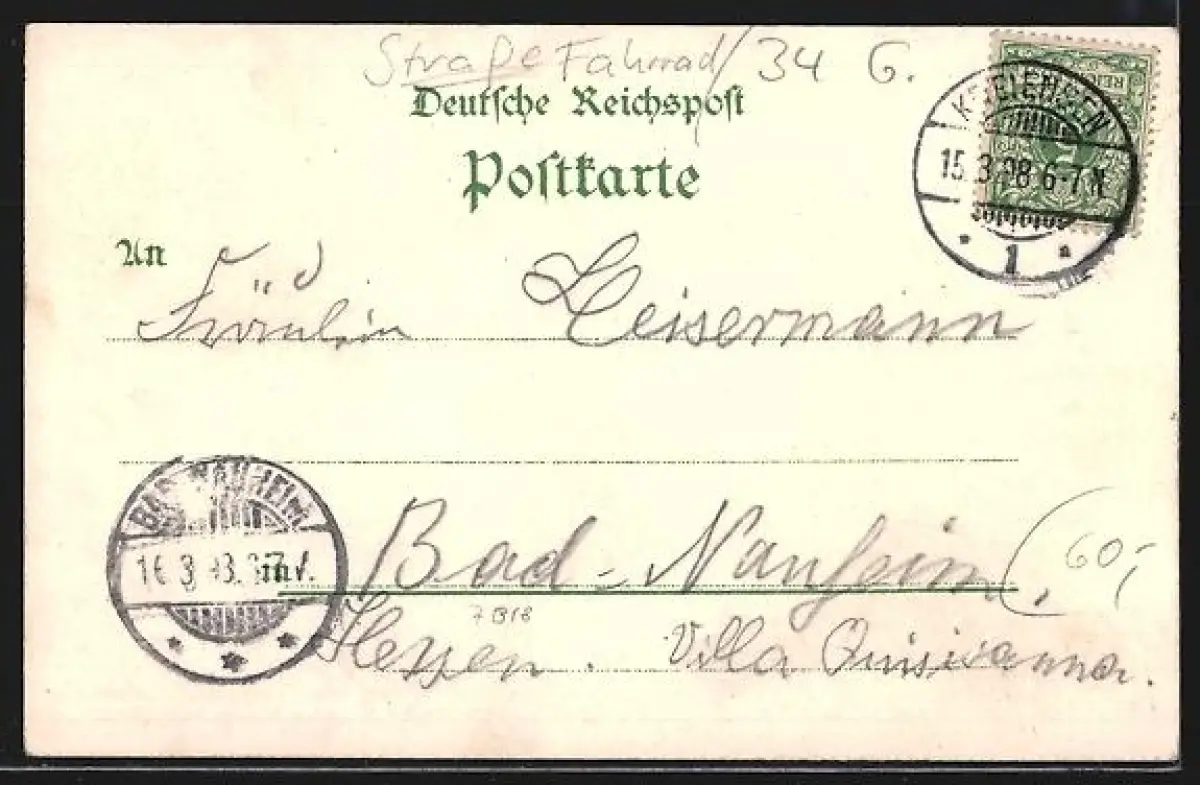 Straße Fahrrad / 34 G.
Deutsche Reichspost
Postkarte
KREIENSEN
15.3.98 6-7 N.
1
An
Fräulein Leisermann
BAD NAUHEIM
16 3
in
Bad-Nauheim,
(60,-
7818
Hessen. Villa Quisisanna.